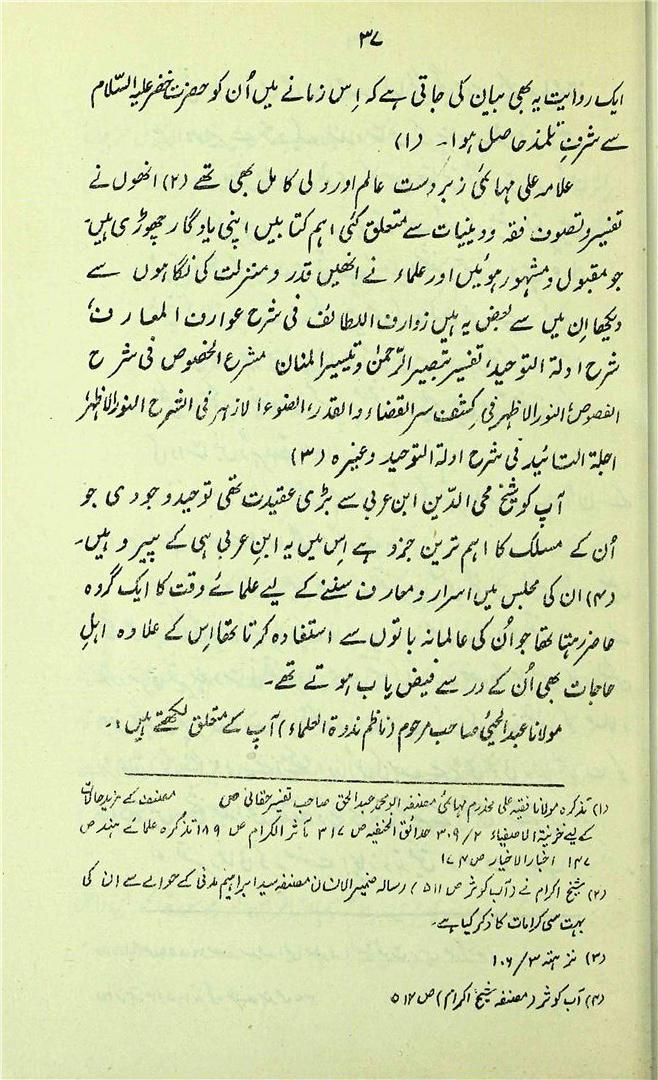 ۳۷
ایک روایت یہ بھی بیان کی جاتی ہے کہ اِس زمانے میں اُن کو حضرت خضر علیہ السّلام
سے شرفِ تلمذ حاصل ہوا۔ (۱)
علامہ علی مہائمیؒ زبردست عالم اور ولی کامل بھی تھے (۲) انھوں نے
تفسیر و تصوف فقہ و دینیات سے متعلق کئی اہم کتابیں اپنی یادگار چھوڑی ہیں۔
جو مقبول و مشہور ہوئیں اور علماء نے انھیں قدر و منزلت کی نگاہوں سے
دیکھا اِن میں سے بعض یہ ہیں زوارف اللطائف فی شرح عوارف المعارف،
شرح ادلۃ التوحید، تفسیر تبصیر الرّحمٰن و تیسیر المنان مشرع الخصوص فی شرح
الفصوص، النور الاظہر فی کشف سر القضاء والقدر، الضوءالازہر فی الشرح النور الاظہر،
اجلۃ التائید فی شرح ادلۃ التوحید وغیرہ (۳)
آپ کو شیخ محی الدّین ابن عربی سے بڑی عقیدت تھی توحید وجودی جو
اُن کے مسلک کا اہم ترین جزو ہے اِس میں یہ ابنِ عربی ہی کے پیرو ہیں۔
(۴) ان کی مجلس میں اسرار و معارف سننے کے لیے علمائے وقت کا ایک گروہ
حاضر رہتا تھا جو اُن کی عالمانہ باتوں سے استفادہ کرتا تھا اِس کے علاوہ اہلِ
حاجات بھی اُن کے در سے فیض یاب ہوتے تھے۔
مولانا عبدالحیٔ صاحب مرحوم (ناظم ندوۃ العلماء) آپ کے متعلق لکھتے ہیں:۔
(۱) تذکرہ مولانا فقیہ علی مخدوم مہائمیؒ مصنفہ ابو محمد عبدالحق صاحب تفسیر حقانی ص مصنف کے مزید حالات
کے لیے خزینۃ الاصفیاء ۲/۳۰۹ حدائق الحنفیہ ص ۳۱۷ مآثر الکرام ص ۱۸۹ تذکرہ علمائے ہند ص
۱۴۷ اخبار الاخیار ص ۱۷۴
(۲) شیخ اکرام نے (آب کوثر ص ۵۱۱) رسالہ ضمیر الانسان مصنفہ سید ابراہیم مدنی کے حوالے سے ان کی
بہت سی کرامات کا ذکر کیا ہے۔
(۳) نزہتہ ۳/۱۰۶
(۴) آب کوثر (مصنفہ شیخ اکرام) ص ۵۱۲